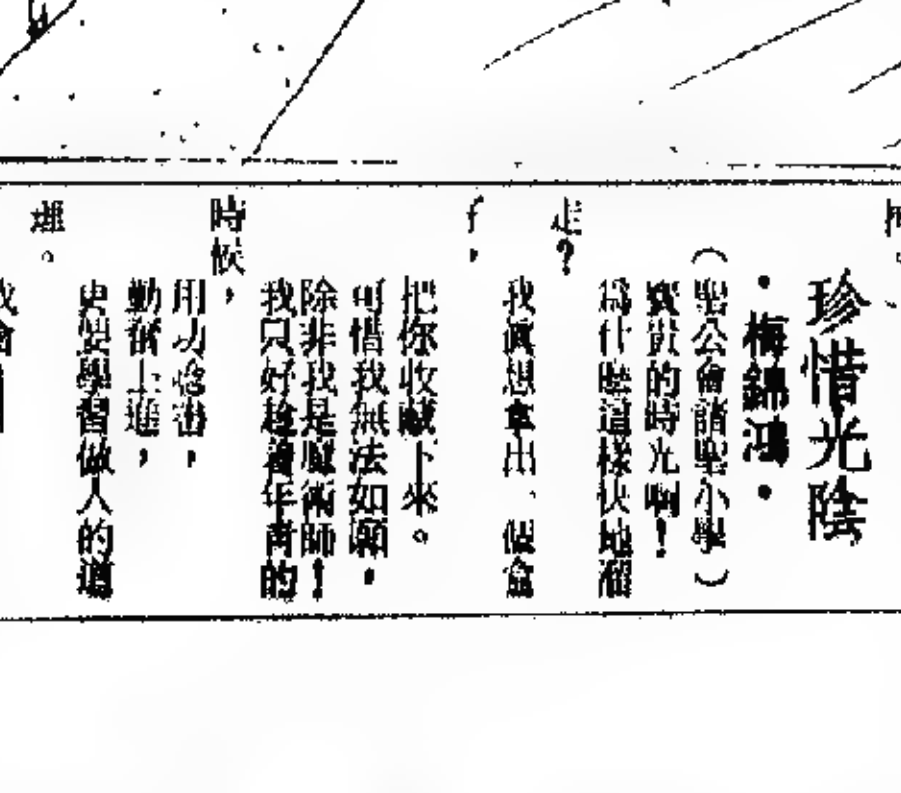 珍惜光陰
•梅錦鴻•
（聖公會諸聖小學）
寶貴的時光啊！
爲什麽這樣快地溜
走？
我眞想拿出一個盒
子，
把你收藏下來。
可惜我無法如願，
除非我是魔術師！
我只好趁着年靑的
時候，
用功唸書，
勤奮上進，
更要學習做人的道
理。
我會